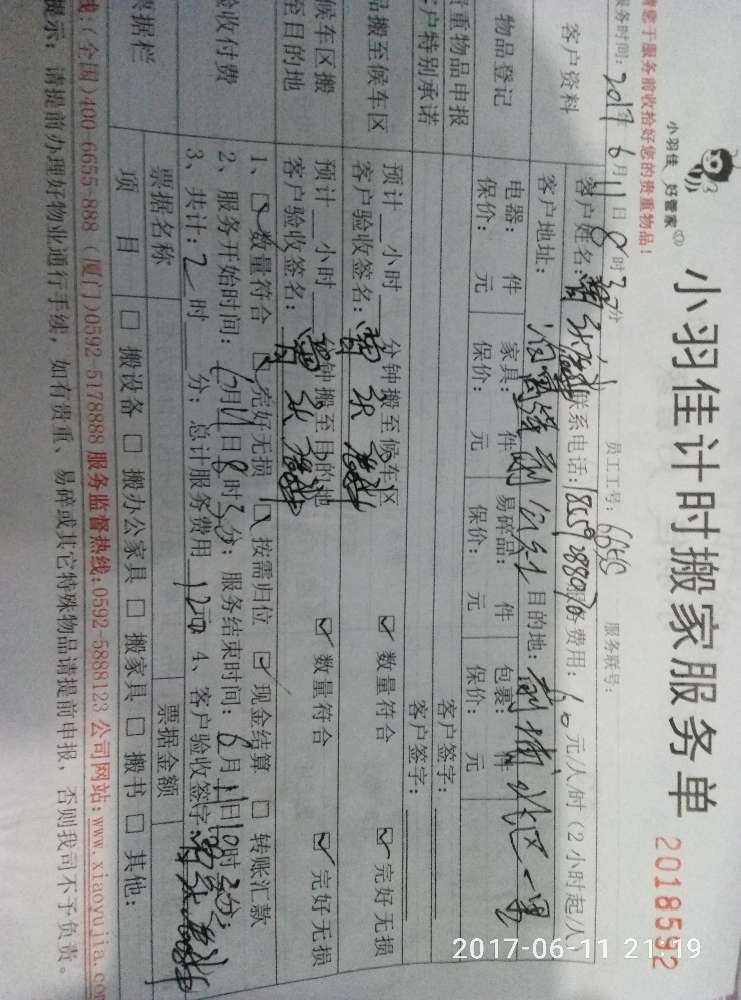 小羽佳 好管家
小羽佳计时搬家服务单 2018592
请您于服务前收拾好您的贵重物品！
服务时间：2017年6月11日8时30分 员工工号： 服务联号：
客户资料 客户姓名： 联系电话： 服务费用：60元/人/时（2小时起/人
客户地址： 目的地：
物品登记 电器： 件 家具： 件 易碎品： 件 包裹： 件
保价： 元 保价： 元 保价： 元 保价： 元
贵重物品申报 客户签字：
客户特别承诺 客户签字：
品搬至候车区 预计 小时 分钟搬至候车区 ☑ 数量符合 ☑ 完好无损
客户验收签名：
候车区搬至目的地 预计 小时 分钟搬至目的地 ☑ 数量符合 ☑ 完好无损
客户验收签名：
验收付费 1、☑ 数量符合 ☑ 完好无损 ☑ 按需归位 ☑ 现金结算 □ 转账汇款
2、服务开始时间：6月11日8时30分；服务结束时间：6月11日10时30分；
3、共计：2时 分；总计服务费用 120元 4、客户验收签字：
票据栏 票据名称 票据金额
项目 □ 搬设备 □ 搬办公家具 □ 搬家具 □ 搬书 □ 其他：
线：(全国)400-6655-888 (厦门)0592-5178888 服务监督热线:0592-5888123 公司网站:www.xiaoyujia.com
提示：请提前办理好物业通行手续，如有贵重、易碎或其它特殊物品请提前申报，否则我司不予负责。
2017-06-11 21:19